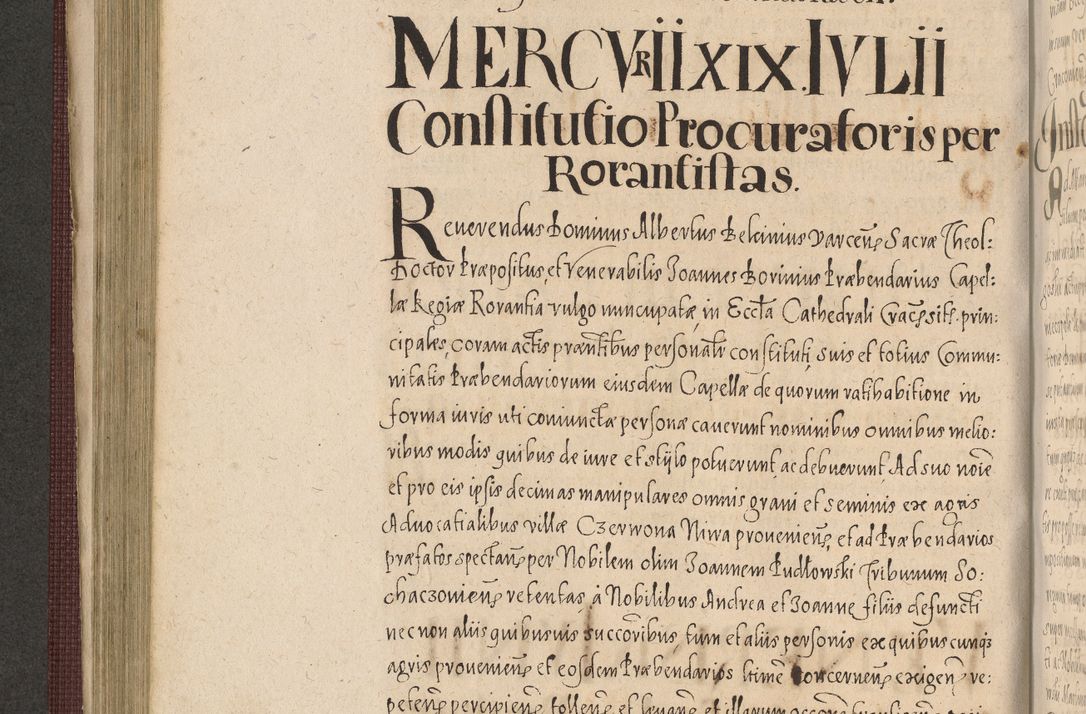 MERCVRII XIX. IVLII
Constitutio Procuratoris per
Rorantistas.
Reuerendus Dominus Albertus Belcinius Varcen Sacræ Theol:
Doctor Præpositus, et Venerabilis Joannes Borinius Præbendarius Capel:
læ Regiæ Rorantia vulgo nuncupatæ, in Eccła Cathedrali Crac sitt. prin:
cipales, coram actis præntibus personałr constituti, suis et totius Commu:
nitatis Præbendariorum eiusdem Capellæ de quorum ratihabitione in
forma iuris uti coniunctæ personæ cauerunt nominibus omnibus melio:
ribus modis quibus de iure et stylo potuerunt, ac debuerunt, Ad suo noie
et pro eis ipsis decimas manipulares omnis grani et seminis ex agris
Aduocatialibus villæ Czerwona Niwa prouenien, et ad Præbendarios
præfatos spectan per Nobilem olim Joannem Pudłowski Tribunum So:
chaczouien retentas, à Nobilibus Andrea et Joanne filiis defuncti
necnon aliis quibusuis succoribus, tum et aliis personis ex quibuscunq
agris prouenien et eosdem Præbendarios ltime concernen exigen re:
peten percipien tollen et leuan et illarum